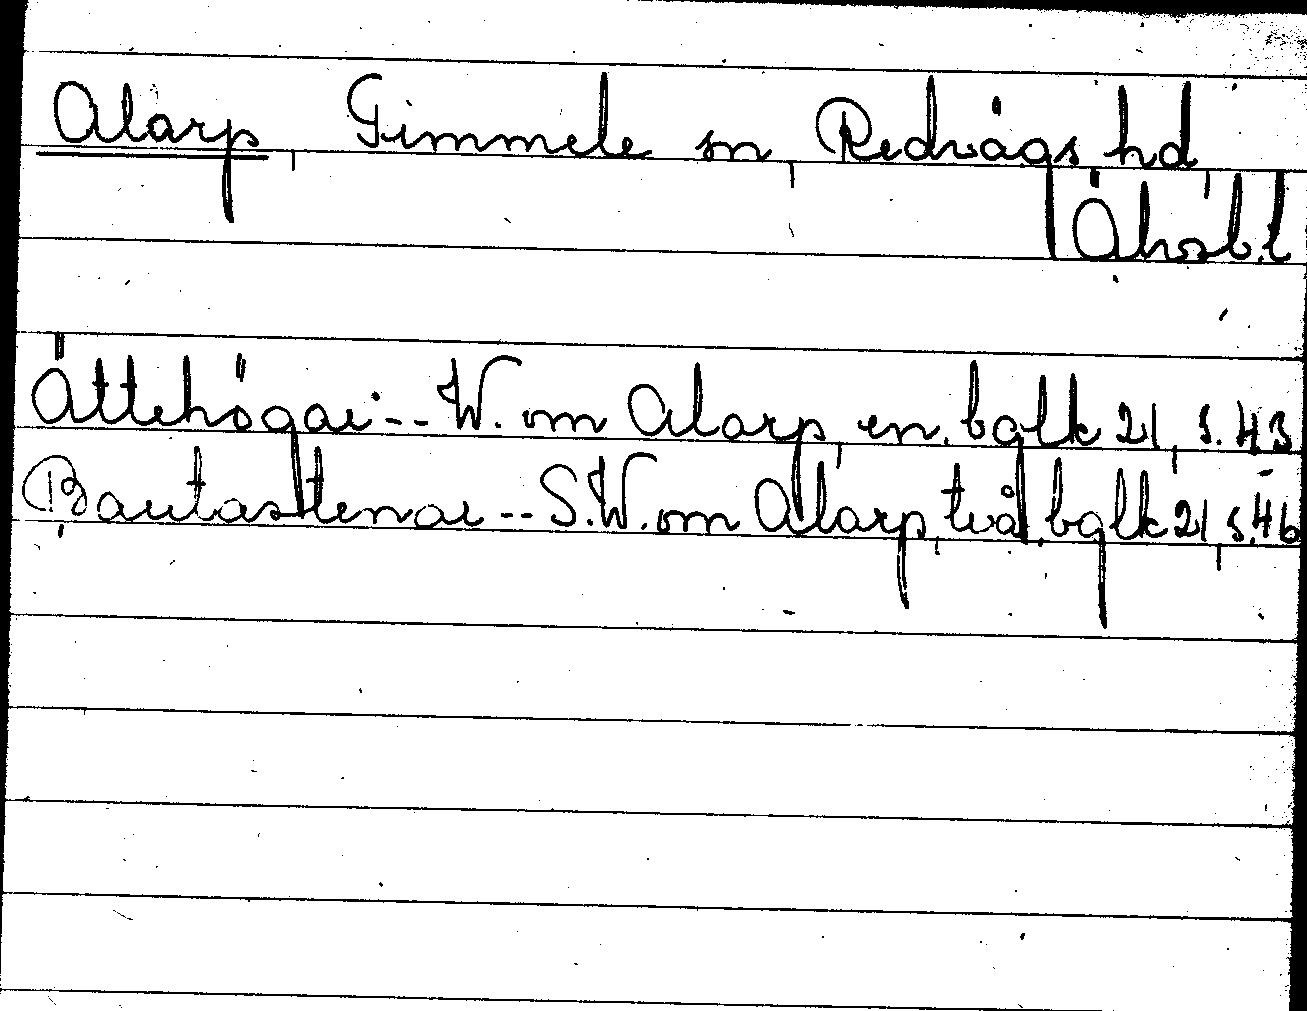 Alarp, Gimmele sn, Redvägs hd,
Älvsb.l
Ättehögar -- W. om Alarp, en. bglk 21, s. 43
Bautastenar -- S.W. om Alarp, två. bglk 21, s. 46